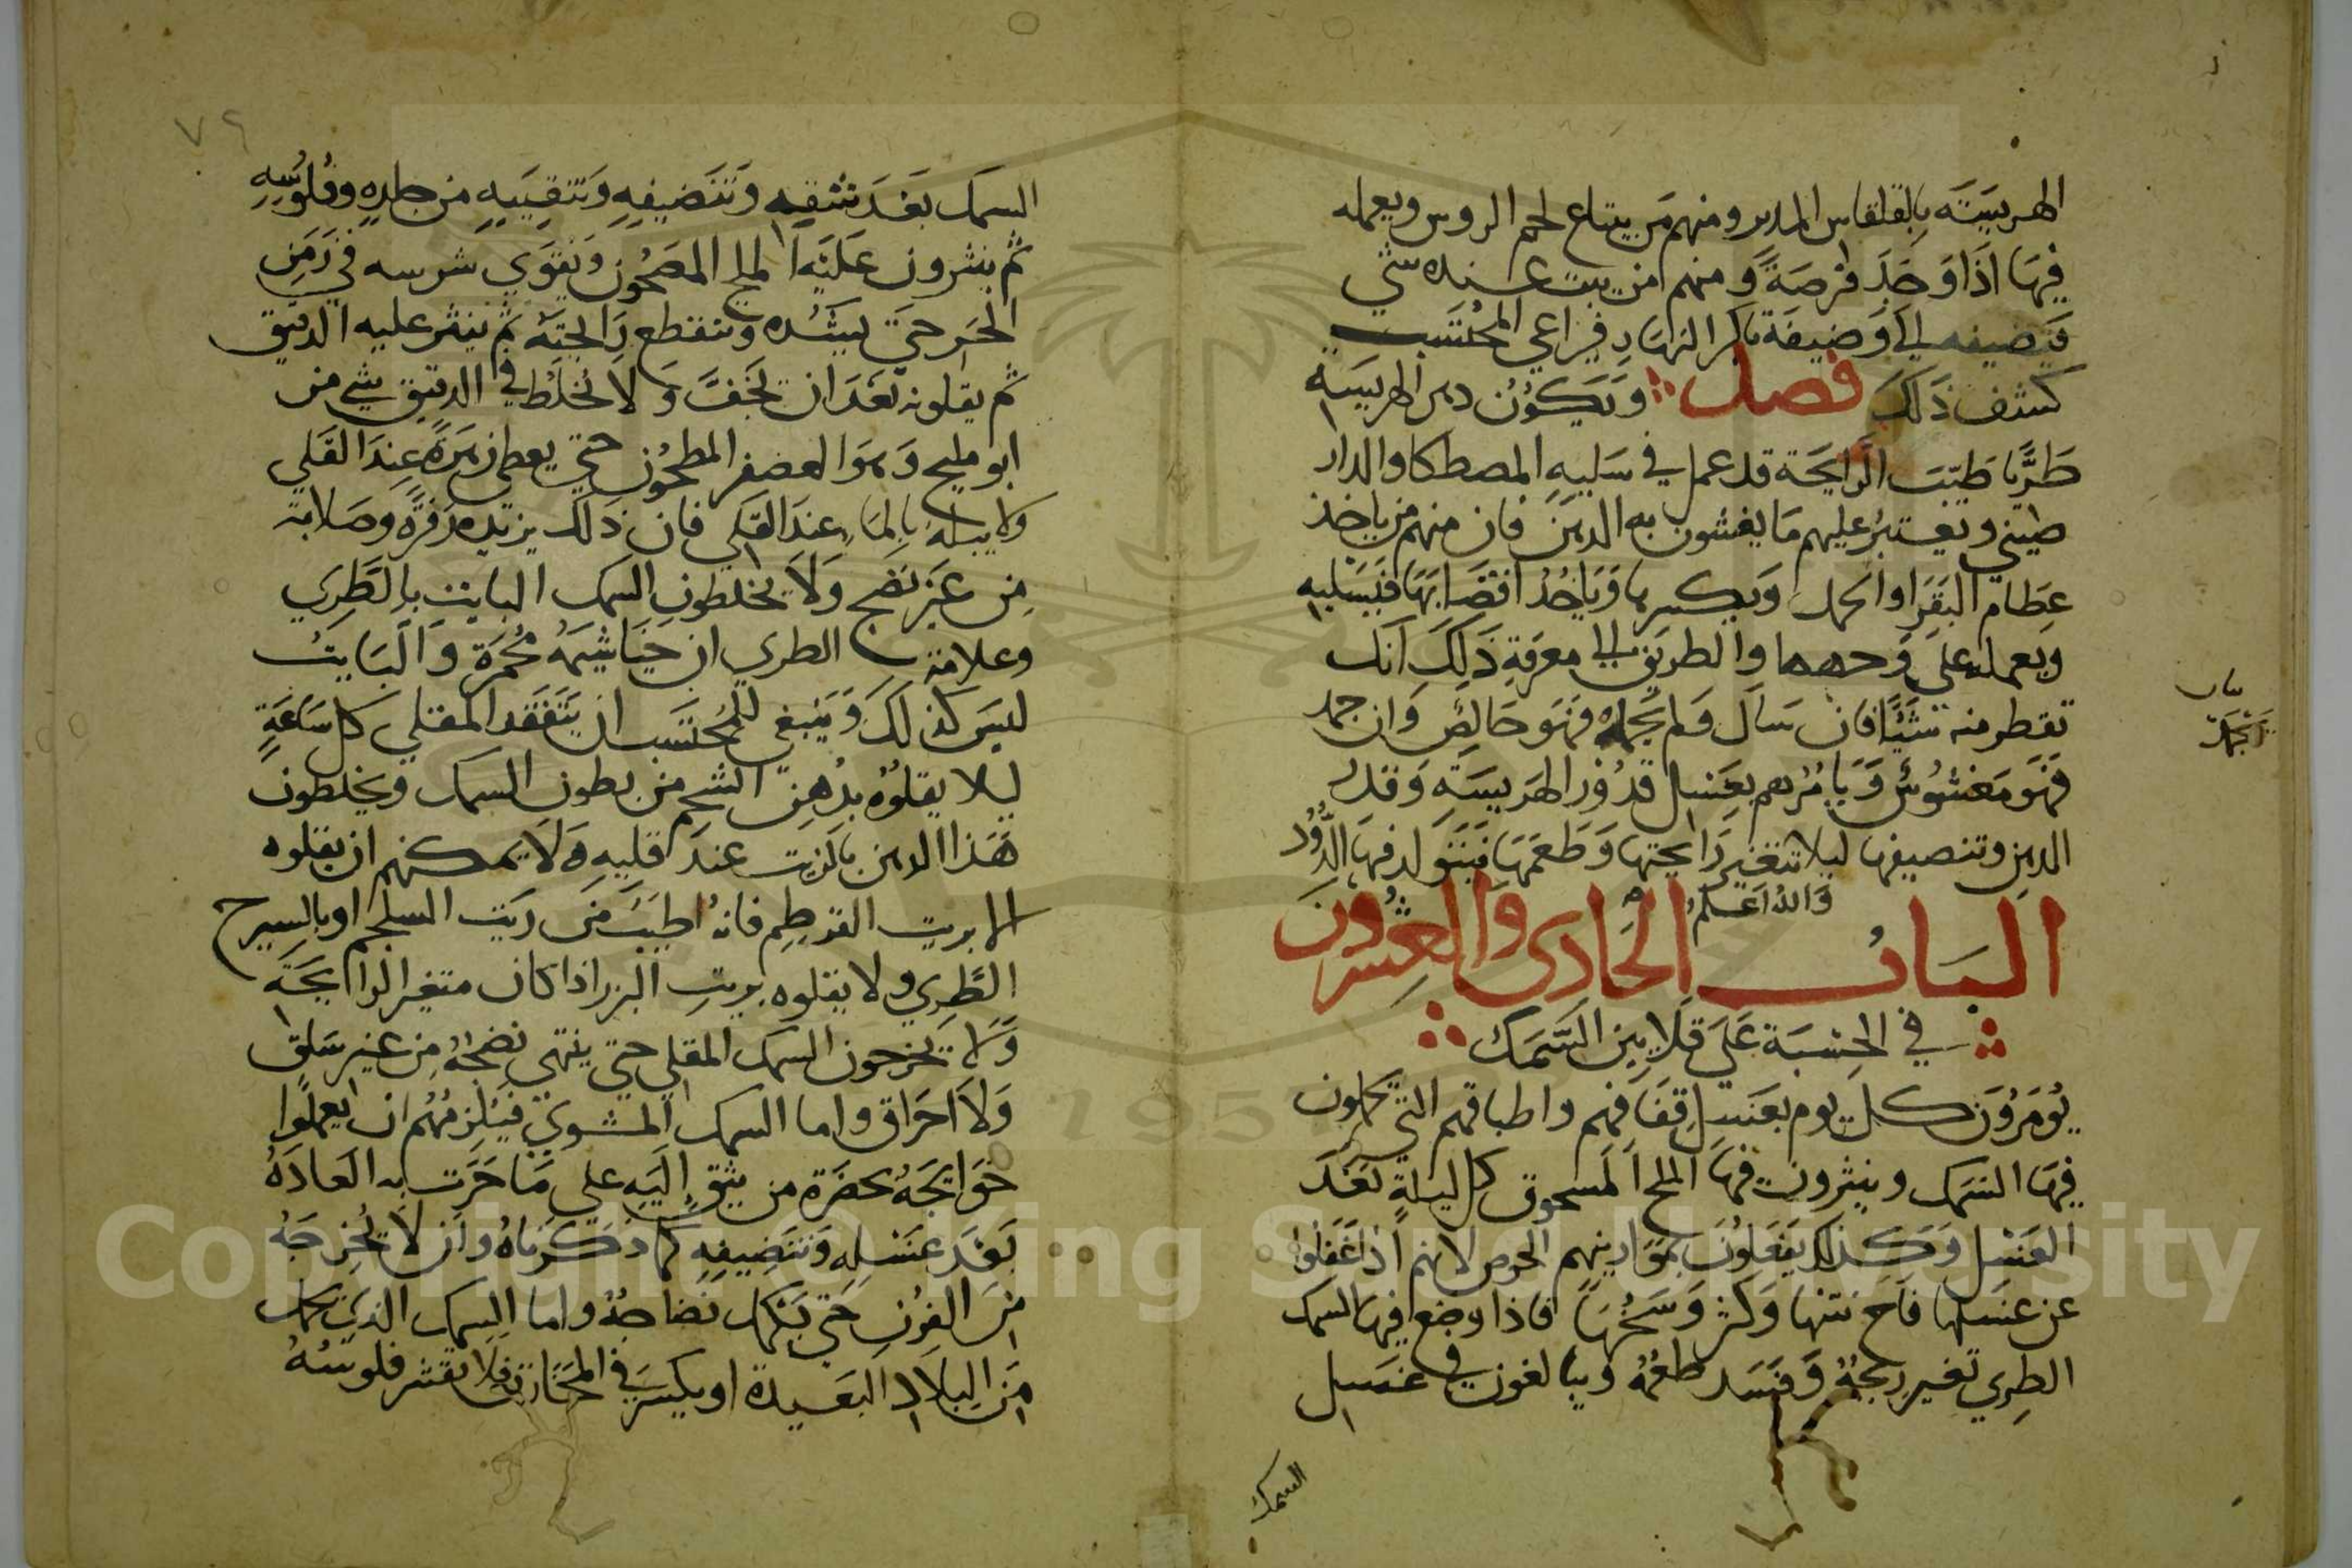 الهريسته بالقلقاس المدبر ومنهم من يبتاع لحم الروس ويعمله
فيها اذا وجد فرصة ومنهم من يبت عنده شي
فيضيفه الي وضيفة باكر النهار فيراعي المحتسب
كشف ذلك فصل ويكون دهن الهريسة
طريا طيبت الرايحة قد عمل في سليه المصطكا والدار
صيني ويعتبر عليهم ما يغشون به الدهن فان منهم من ياخذ
عظام البقر او الجمل ويكسرها وياخذ اقصابها فيسليه
ويعمله علي وجهها والطريق الي معرفة ذلك انك
تقطر منه شيا فان سال ولم يجمد فهو خالص وان جمد
فهو مغشوش ويامرهم بغسل قدور الهريسة وقدر
الدهن وتنضيفها ليلا تتغير رايحتها وطعمها فيتولد فيها الدود
والله اعلم
الباب الحادي والعشرون
في الحسبة علي قلايين السمك
يومرون كل يوم بغسل قففهم واطباقهم التي يحملون
فيها السمك وينثرون فيها الملح المسحوق كل ليلة بعد
الغسل وكذلك يفعلون بموازينهم الخوص لانهم اذا غفلوا
عن غسلها فاح نتنها وكثر وسخها فاذا وضع فيها السمك
الطري تغير ريحه وفسد طعمه ويبالغون في غسل
السمك
٧٩
السمك بعد شقه وتنضيفه وتنقيته من جلده وفلوسه
ثم ينثرون عليه الملح المصحون ويقوي شرسه في زمن
الحر حتي يشده وتنقطع رايحته ثم ينثر عليه الدقيق
ثم يقلونه بعد ان تجف ولا يخلط في الدقيق شي من
ابو مليح وهو العصفر المطحون حتي يعطي زمرة عند القلي
ولا يبله بالماء عند القلي فان ذلك يزيده زفره وصلابة
من غير نضج ولا يخلطون السمك البايت بالطري
وعلامة الطري ان خياشيمه محمرة والبايت
ليس كذلك وينبغي للمحتسب ان يتفقد المقلي كل ساعة
ليلا يقلوه بدهن الشحم من بطون السمك ويخلطون
هذا الدهن بالزيت عند قليه ولا يمكنهم ان يقلوه
الا بزيت القرطم فانه اطيب من زيت السلجم او بالسيرج
الطري ولا يقلوه بزيت البزر اذا كان متغير الرايحة
ولا يخرجون السمك المقلي حتي ينتهي نضجه من غير سلق
ولا احراق واما السمك المشوي فيلزمهم ان يعملوا
حوايجه بحضرة من يثق اليه علي ما جرت به العادة
بعد غسله وتنضيفه كما ذكرناه وان لا يخرجه
من الفرن حتي يتكمل نضاجه واما السمك الذي يحمل
من البلاد البعيدة او يكبس في المخازن فلا يقشر فلوسه
Copyright © King Saud University
1957